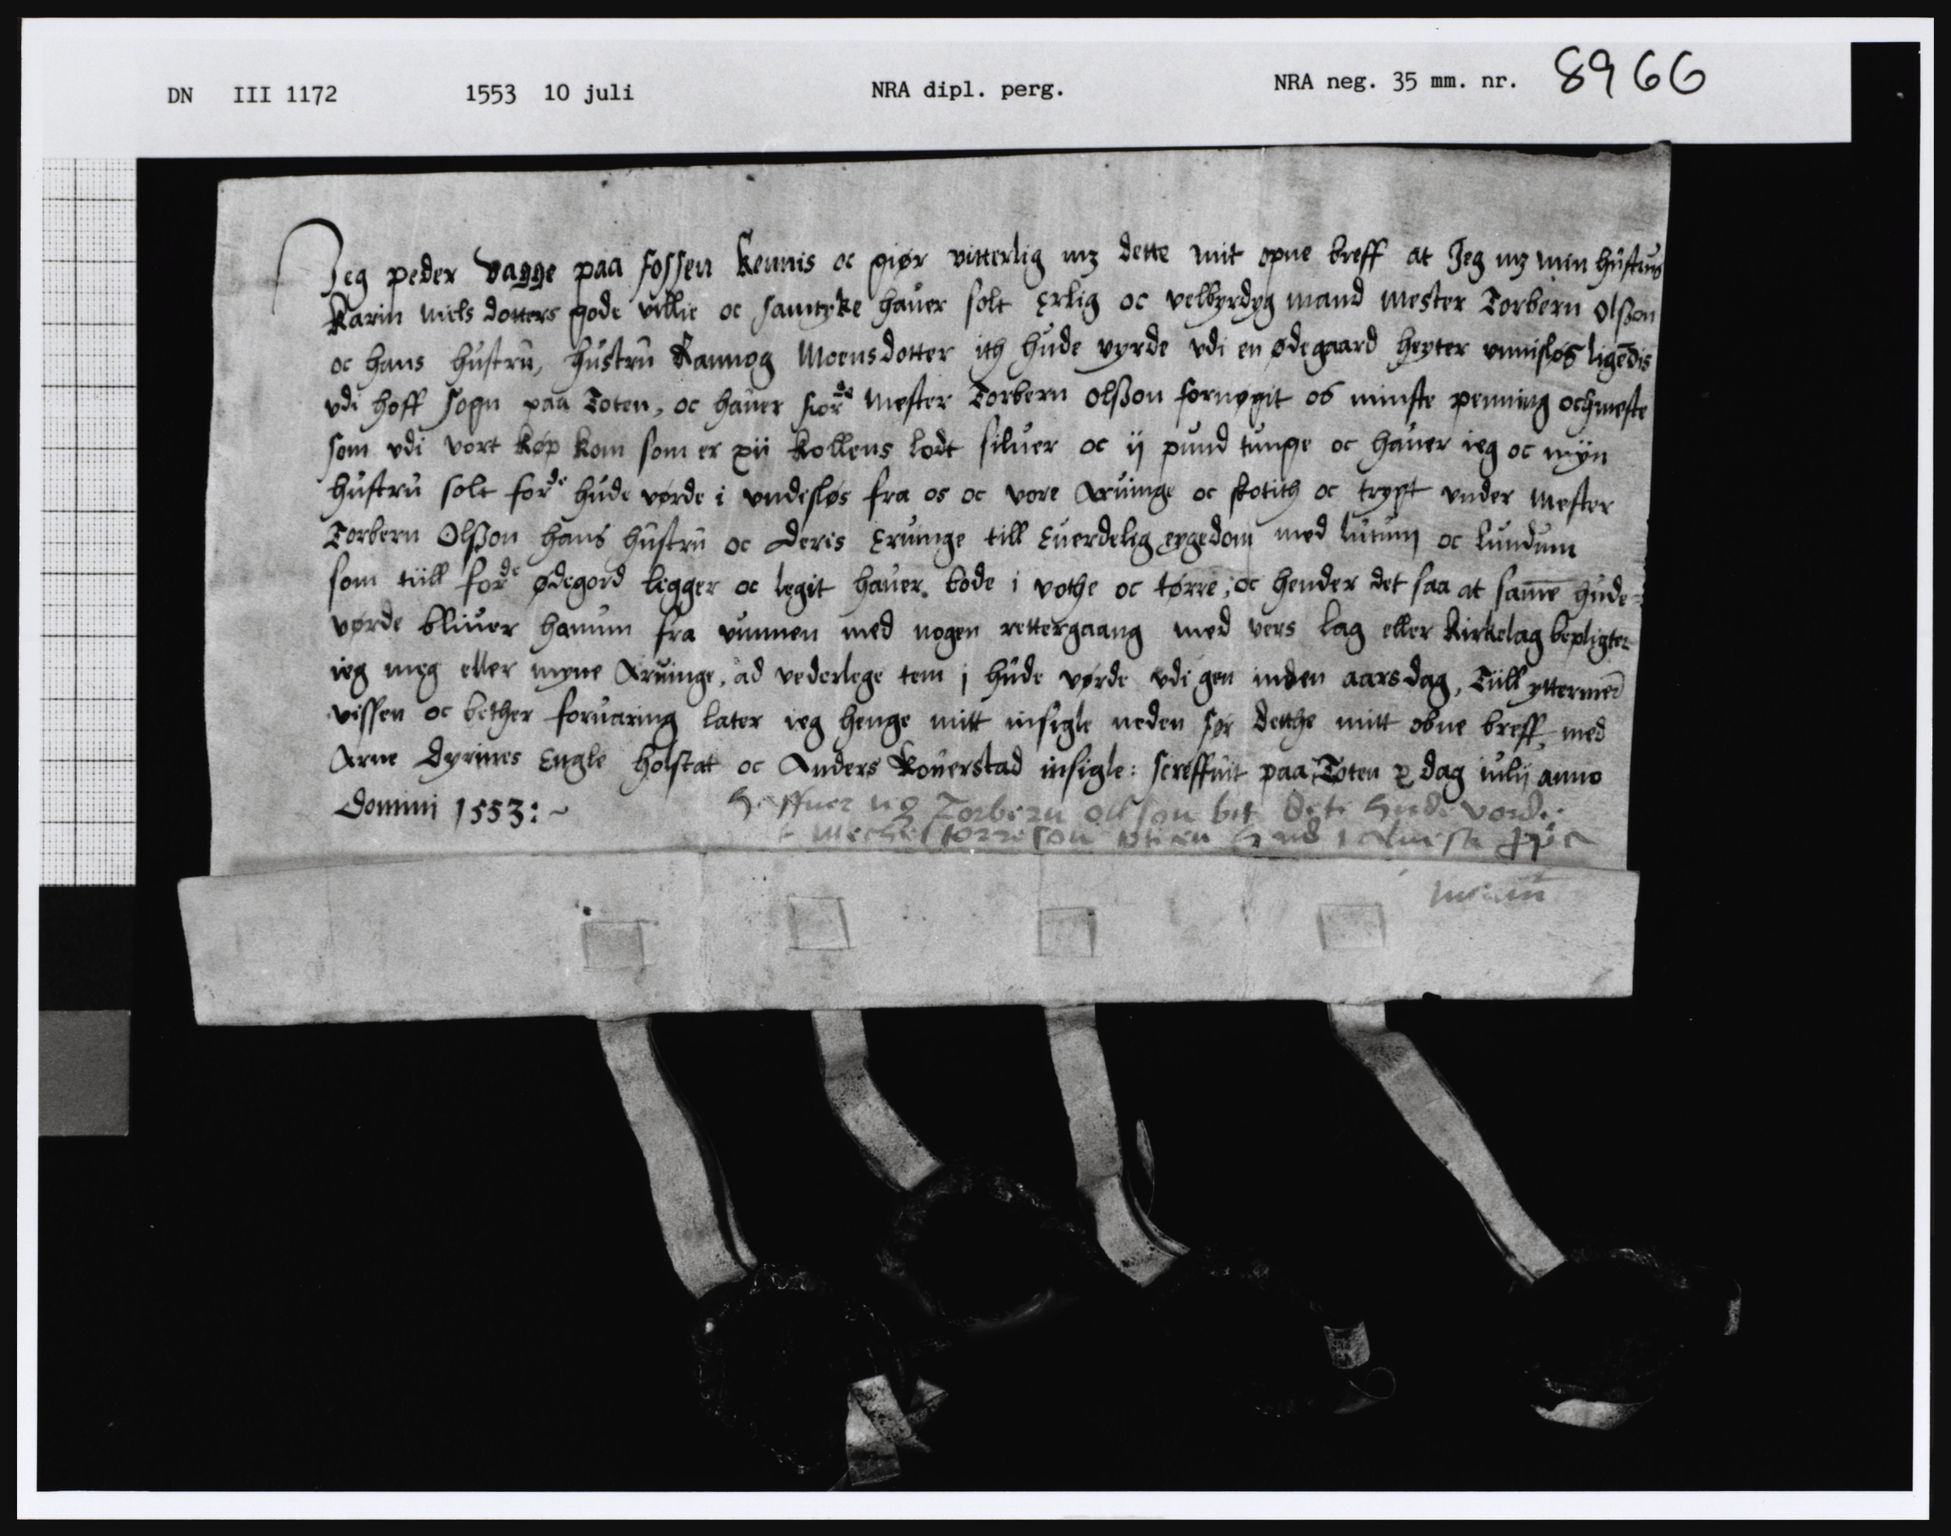 DN III 1172 1553 10 juli NRA dipl. perg. NRA neg. 35 mm. nr. 8966
Jeg peder vagge paa fossen kennis oc giør vitterlig mz dette mit opne breff at Jeg mz min hustrus
Karin niels dotters gode villie oc samtyke hauer solt erlig oc velbyrdyg mand mester Torbern Olsson
oc hans hustru, hustru Rannog Moensdotter ith hude vyrde vdi en ødegaard heyter vnnisløs ligēdis
vdi hoff sogn paa Toten, oc hauer forde mester Torbern olsson fornøgit os minste penning och meste
som vdi vort køp kom som er xii kollens lodt siluer oc ij pund tunge oc hauer ieg oc myn
hustru solt forde hude vørde i vndesløs fra os oc vore Aruinge oc skotith oc trygt vnder mester
Torbern Olsson hans hustru oc deris eruinge till euerdelig eygedom med lutum oc lundum
som till forde ødegord ligger oc legit hauer bode i vothe oc tørre, oc hender det saa at samē hude
vørde bliuer hanum fra vunnen med nogen rettergaang med vers lag eller kirkelag bepligter
ieg meg eller myne Aruinge, ad vederlege tem j hude vørde vdi gen inden aars dag, Till yttermere
vissen oc bether foruaring later ieg henge mitt insigle neden før detthe mitt obne breff, med
Arne dyrines engle holstat oc Anders Kouerstad insigle: screffuit paa Toten x dag iulij anno
domini 1553: ~ haffuer ieg Torbern olsson bet dette hude vorde
Mechel torreson hud i